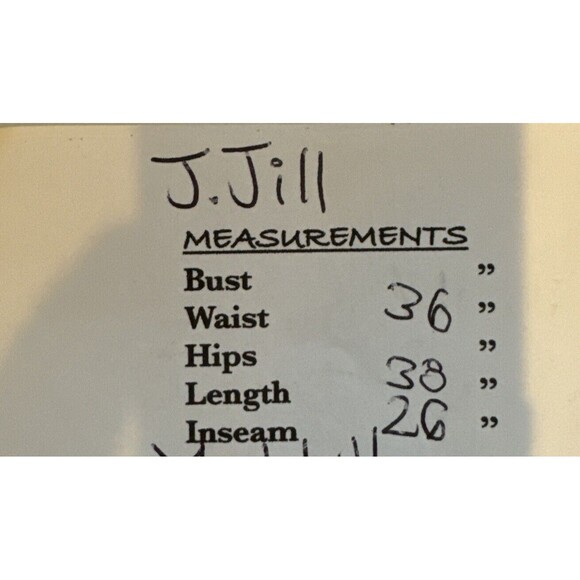 J.Jill
MEASUREMENTS
Bust ”
Waist 36 ”
Hips ”
Length 38 ”
Inseam 26 ”